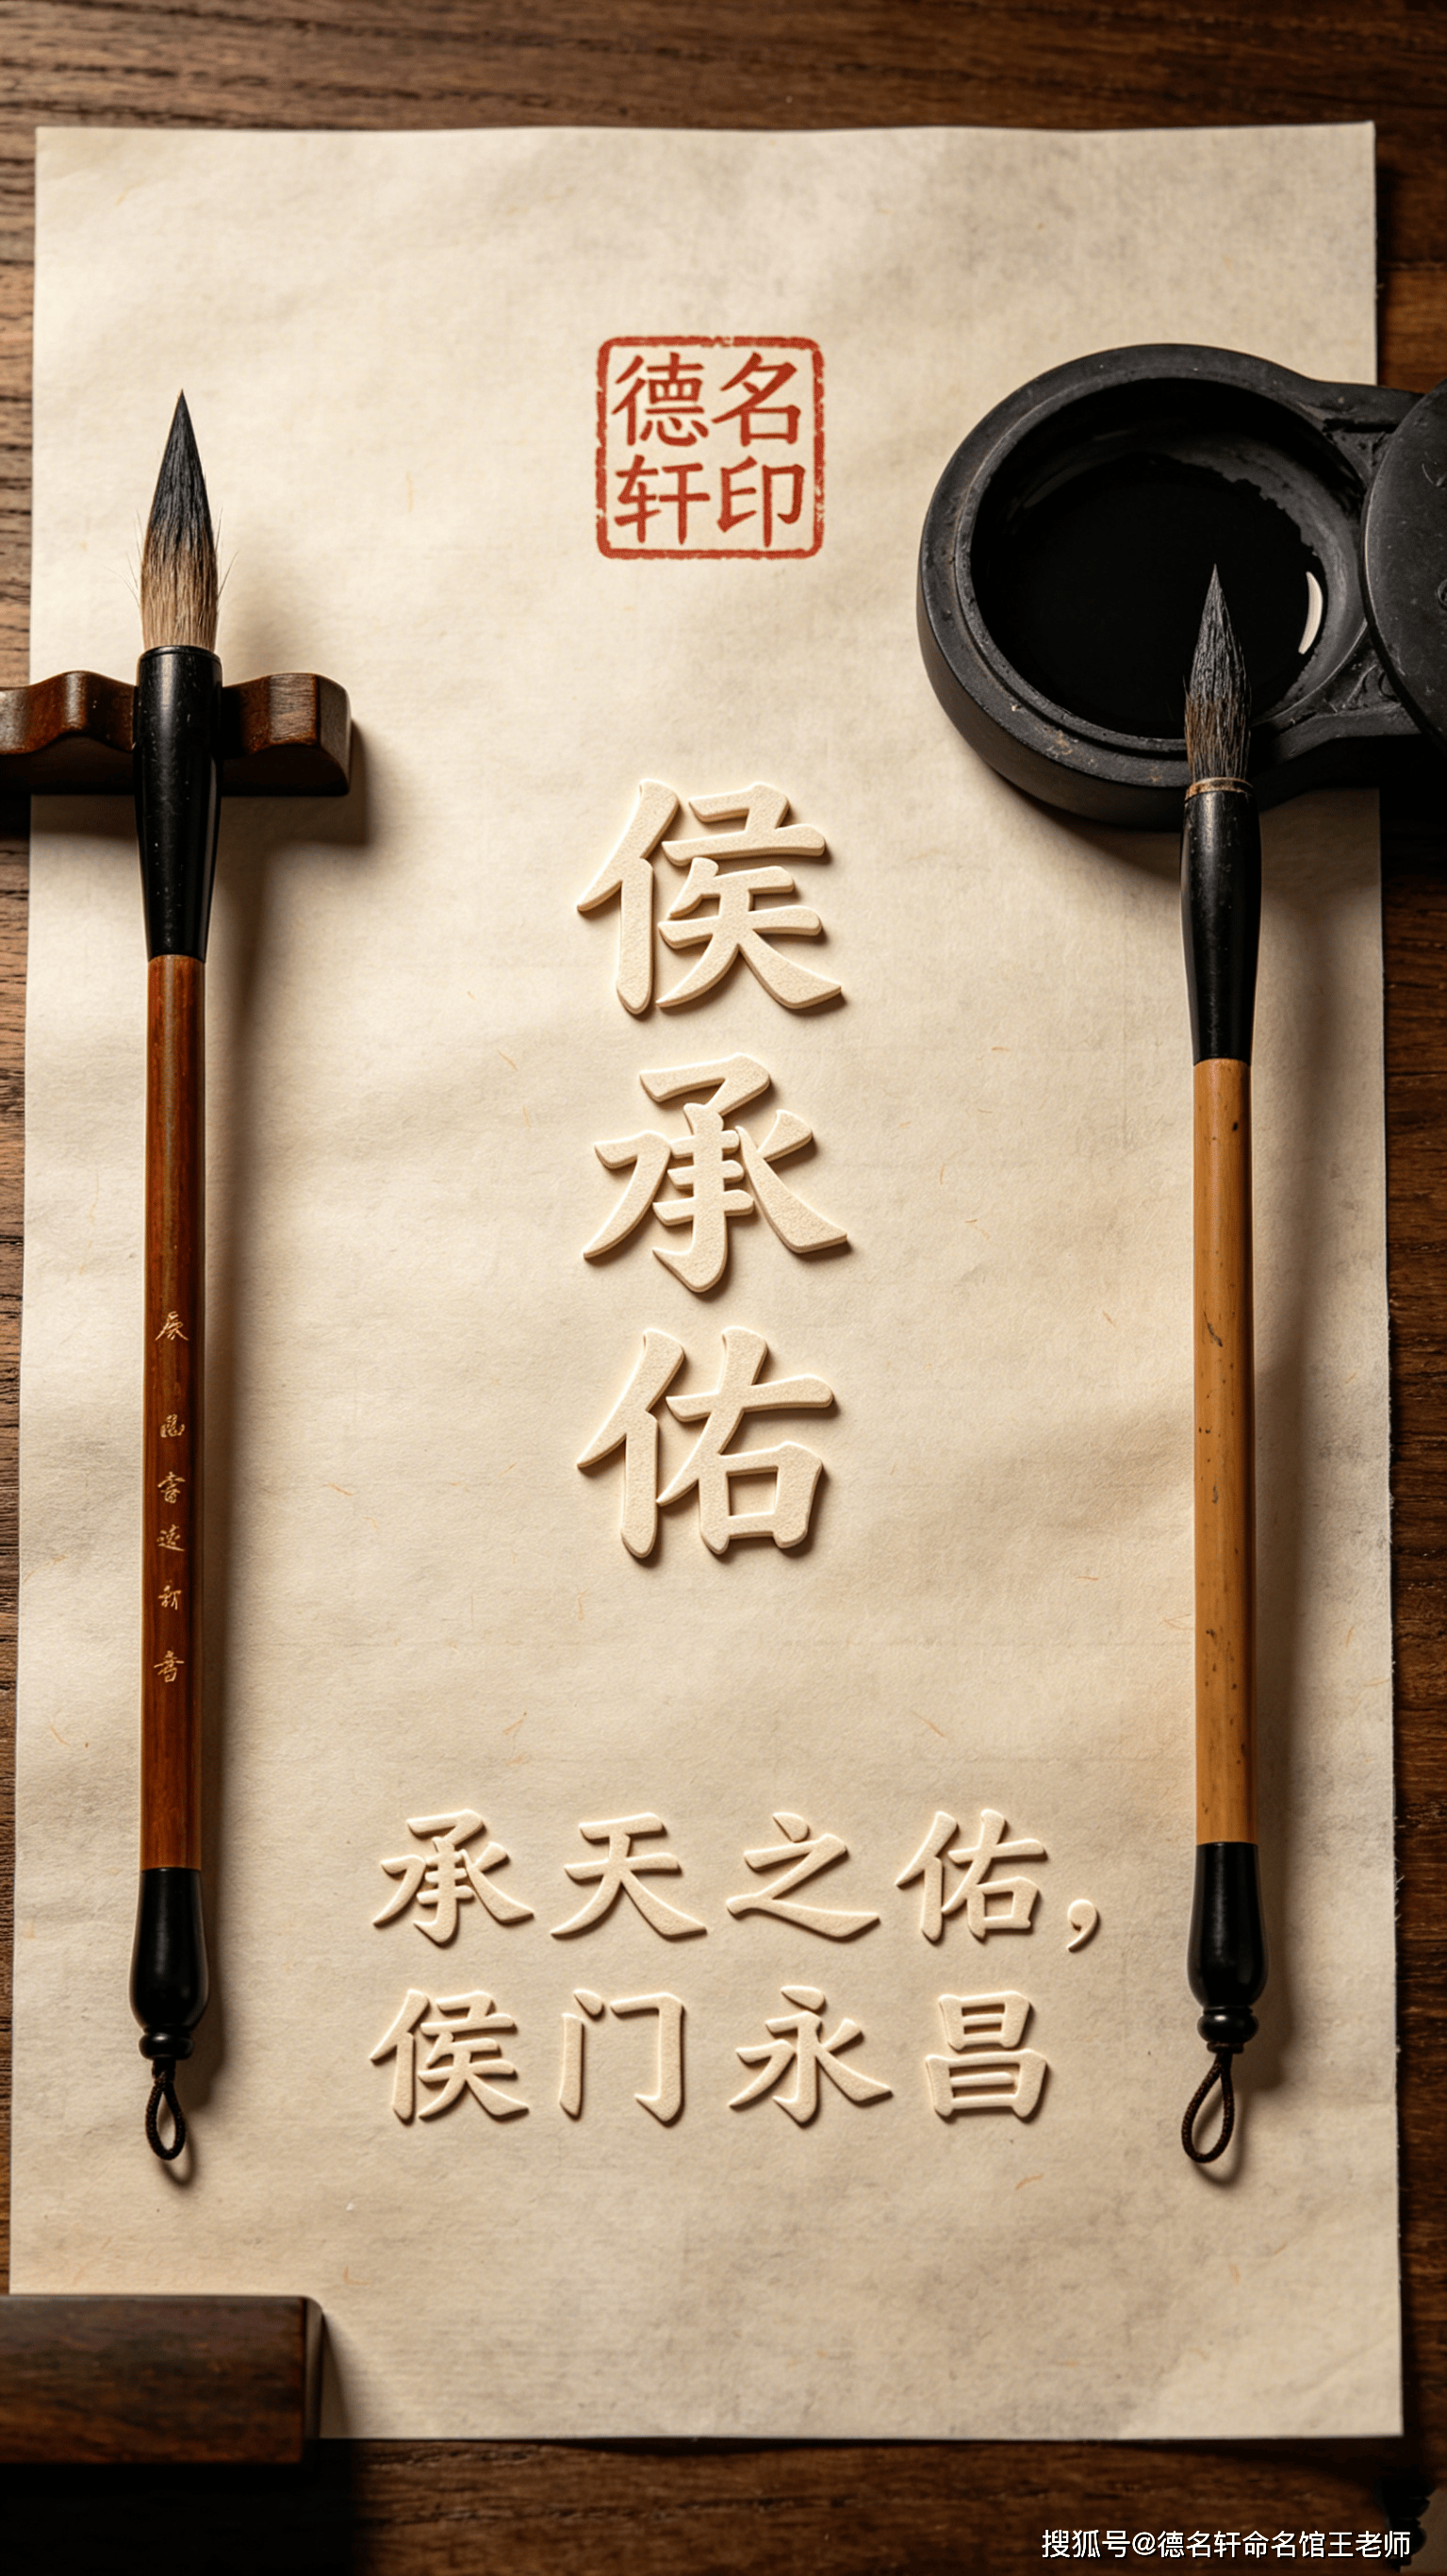 德名
轩印
侯
承
佑
承天之佑，
侯门永昌
搜狐号@德名轩命名馆王老师